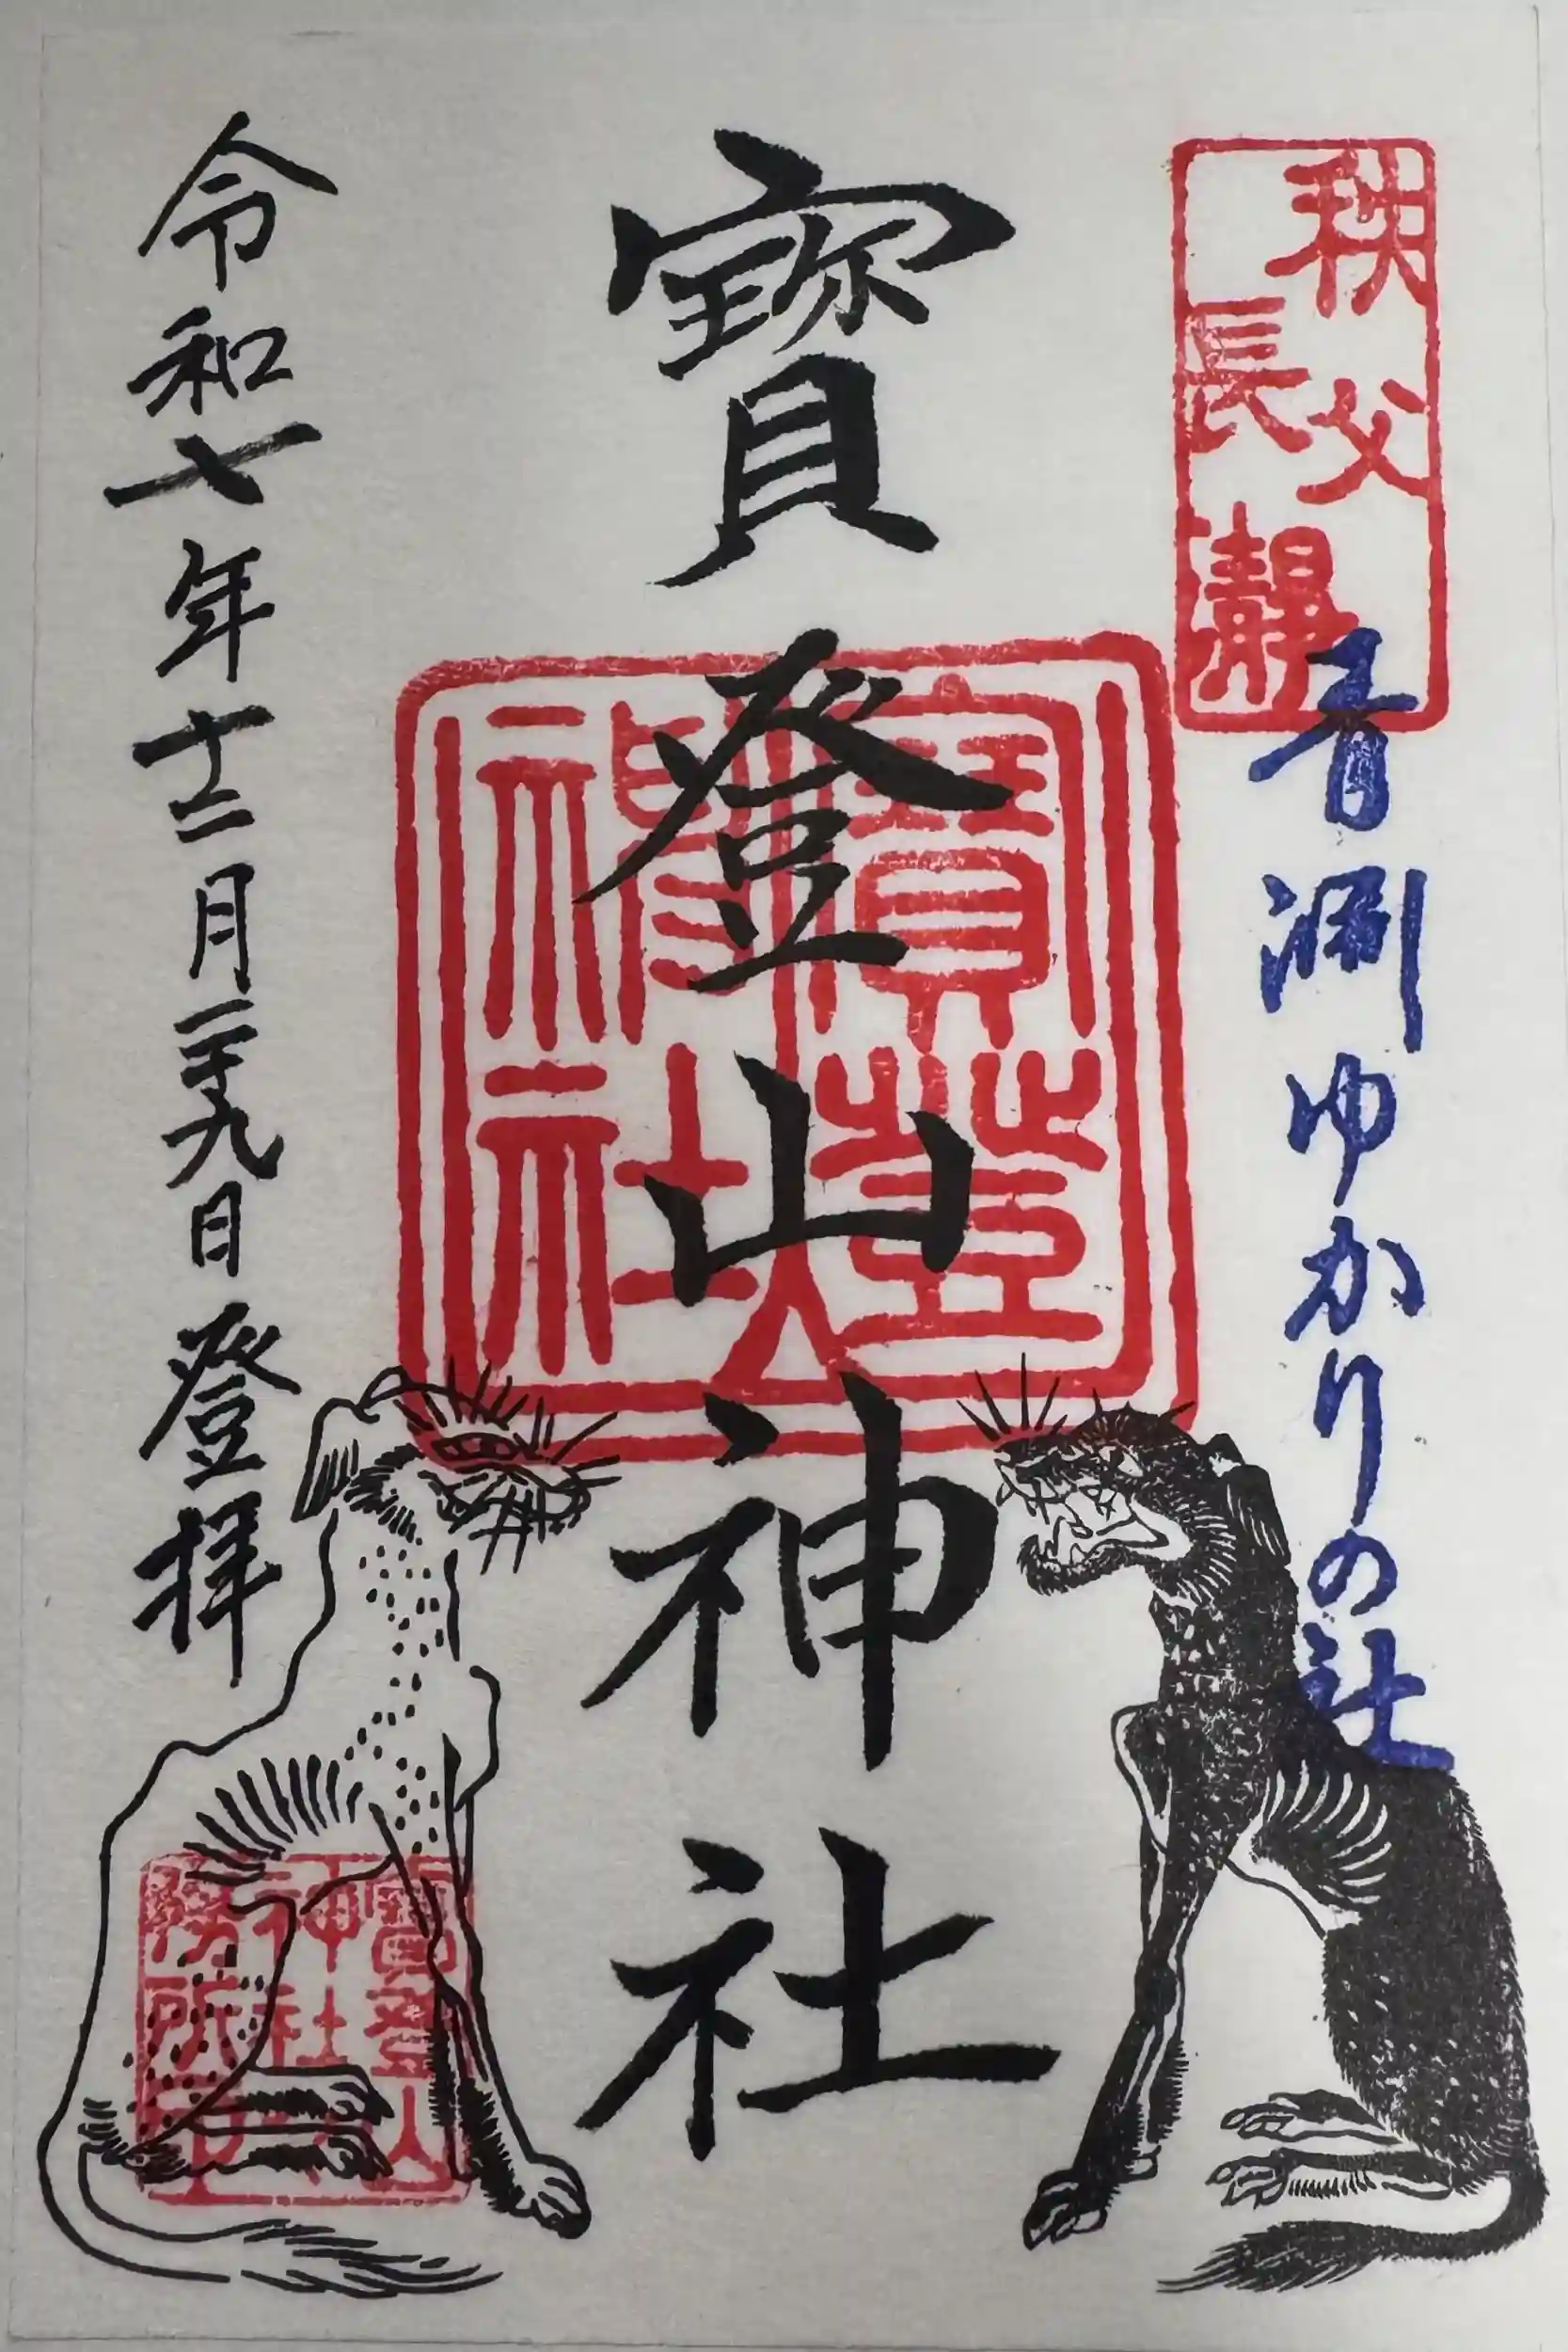 秩父
長瀞
青淵ゆかりの社
寶登山神社
寶登山
神社
令和七年十二月二十九日 登拝
寶登山
神社
務所